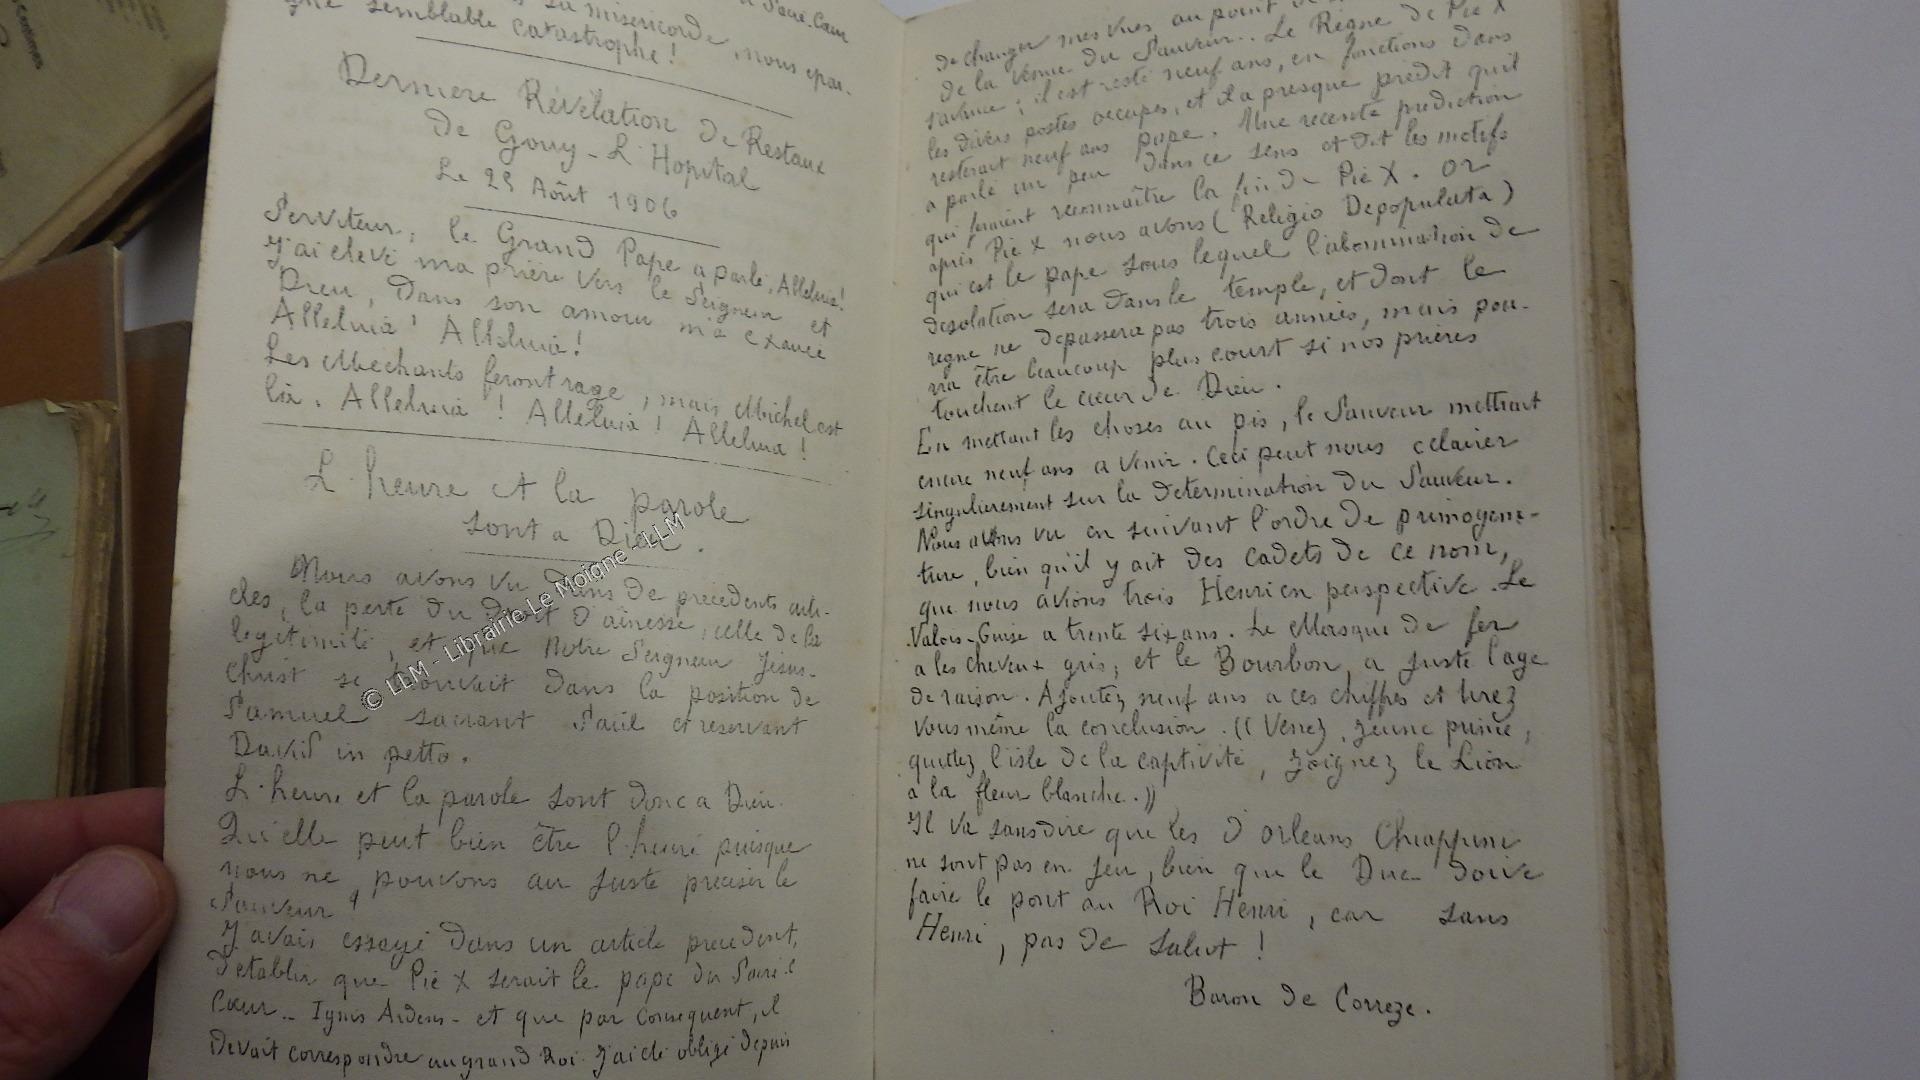 sa miséricorde, nous épar-
gne semblable catastrophe!
Derniere Révélation de Restaux
De Gouy-L'Hopital
Le 25 Août 1906
Serviteur, le Grand Pape a parlé, Alleluia!
J'ai elevé ma prière vers le Seigneur et
Dieu, dans son amour m'a exaucé
Alleluia! Alleluia!
Les Mechants feront rage, mais Michel est
là. Alleluia! Alleluia! Alleluia!
L'heure et la parole
sont a Dieu.
Nous avons vu dans de precedents arti-
cles, la perte du droit d'ainesse, celle de la
legitimité, et que Notre Seigneur Jesus-
Christ se trouvait dans la position de
Samuel sacrant Saül et reservant
David in petto.
L'heure et la parole sont donc a Dieu.
Qu'elle peut bien être l'heure puisque
nous ne pouvons au juste preciser le
Sauveur?
J'avais essayé dans un article precedent,
d'etablir que Pie X serait le pape du Sacré
Cœur - Ignis Ardens - et que par consequent, il
devait correspondre au grand Roi. J'ai été obligé depuis
de changer mes vues au point
de la venue du Sauveur.. Le Règne de Pie X
s'avance; il est resté neuf ans, en fonctions dans
les divers postes occupés, et il a presque prédit qu'il
resterait neuf ans pape. Une recente prediction
a parlé un peu dans ce sens et dit les motifs
qui feraient reconnaître la fin de Pie X. Or
après Pie X nous avons (Religio Depopulata)
qui est le pape sous lequel l'abomination de
desolation sera dans le temple, et dont le
regne ne depassera pas trois années, mais pou-
rra être beaucoup plus court si nos prières
touchent le cœur de Dieu.
En mettant les choses au pis, le Sauveur mettrait
encore neuf ans a venir. Ceci peut nous eclairer
singulierement sur la determination du Sauveur.
Nous avons vu en suivant l'ordre de primogeni-
ture, bien qu'il y ait des cadets de ce nom,
que nous avions trois Henri en perspective. Le
Valois-Guise a trente six ans. Le Masque de fer
a les cheveux gris; et le Bourbon a juste l'age
de raison. Ajoutez neuf ans a ces chiffres et tirez
vous même la conclusion. ((Venez, jeune prince,
quittez l'isle de la captivité, joignez le Lion
a la fleur blanche.))
Il va sans dire que les D'orleans Chiappini
ne sont pas en jeu, bien que le Duc doive
faire le pont au Roi Henri, car sans
Henri, pas de salut!
Baron de Correze.
© LLM - Librairie Le Moigne - LLM